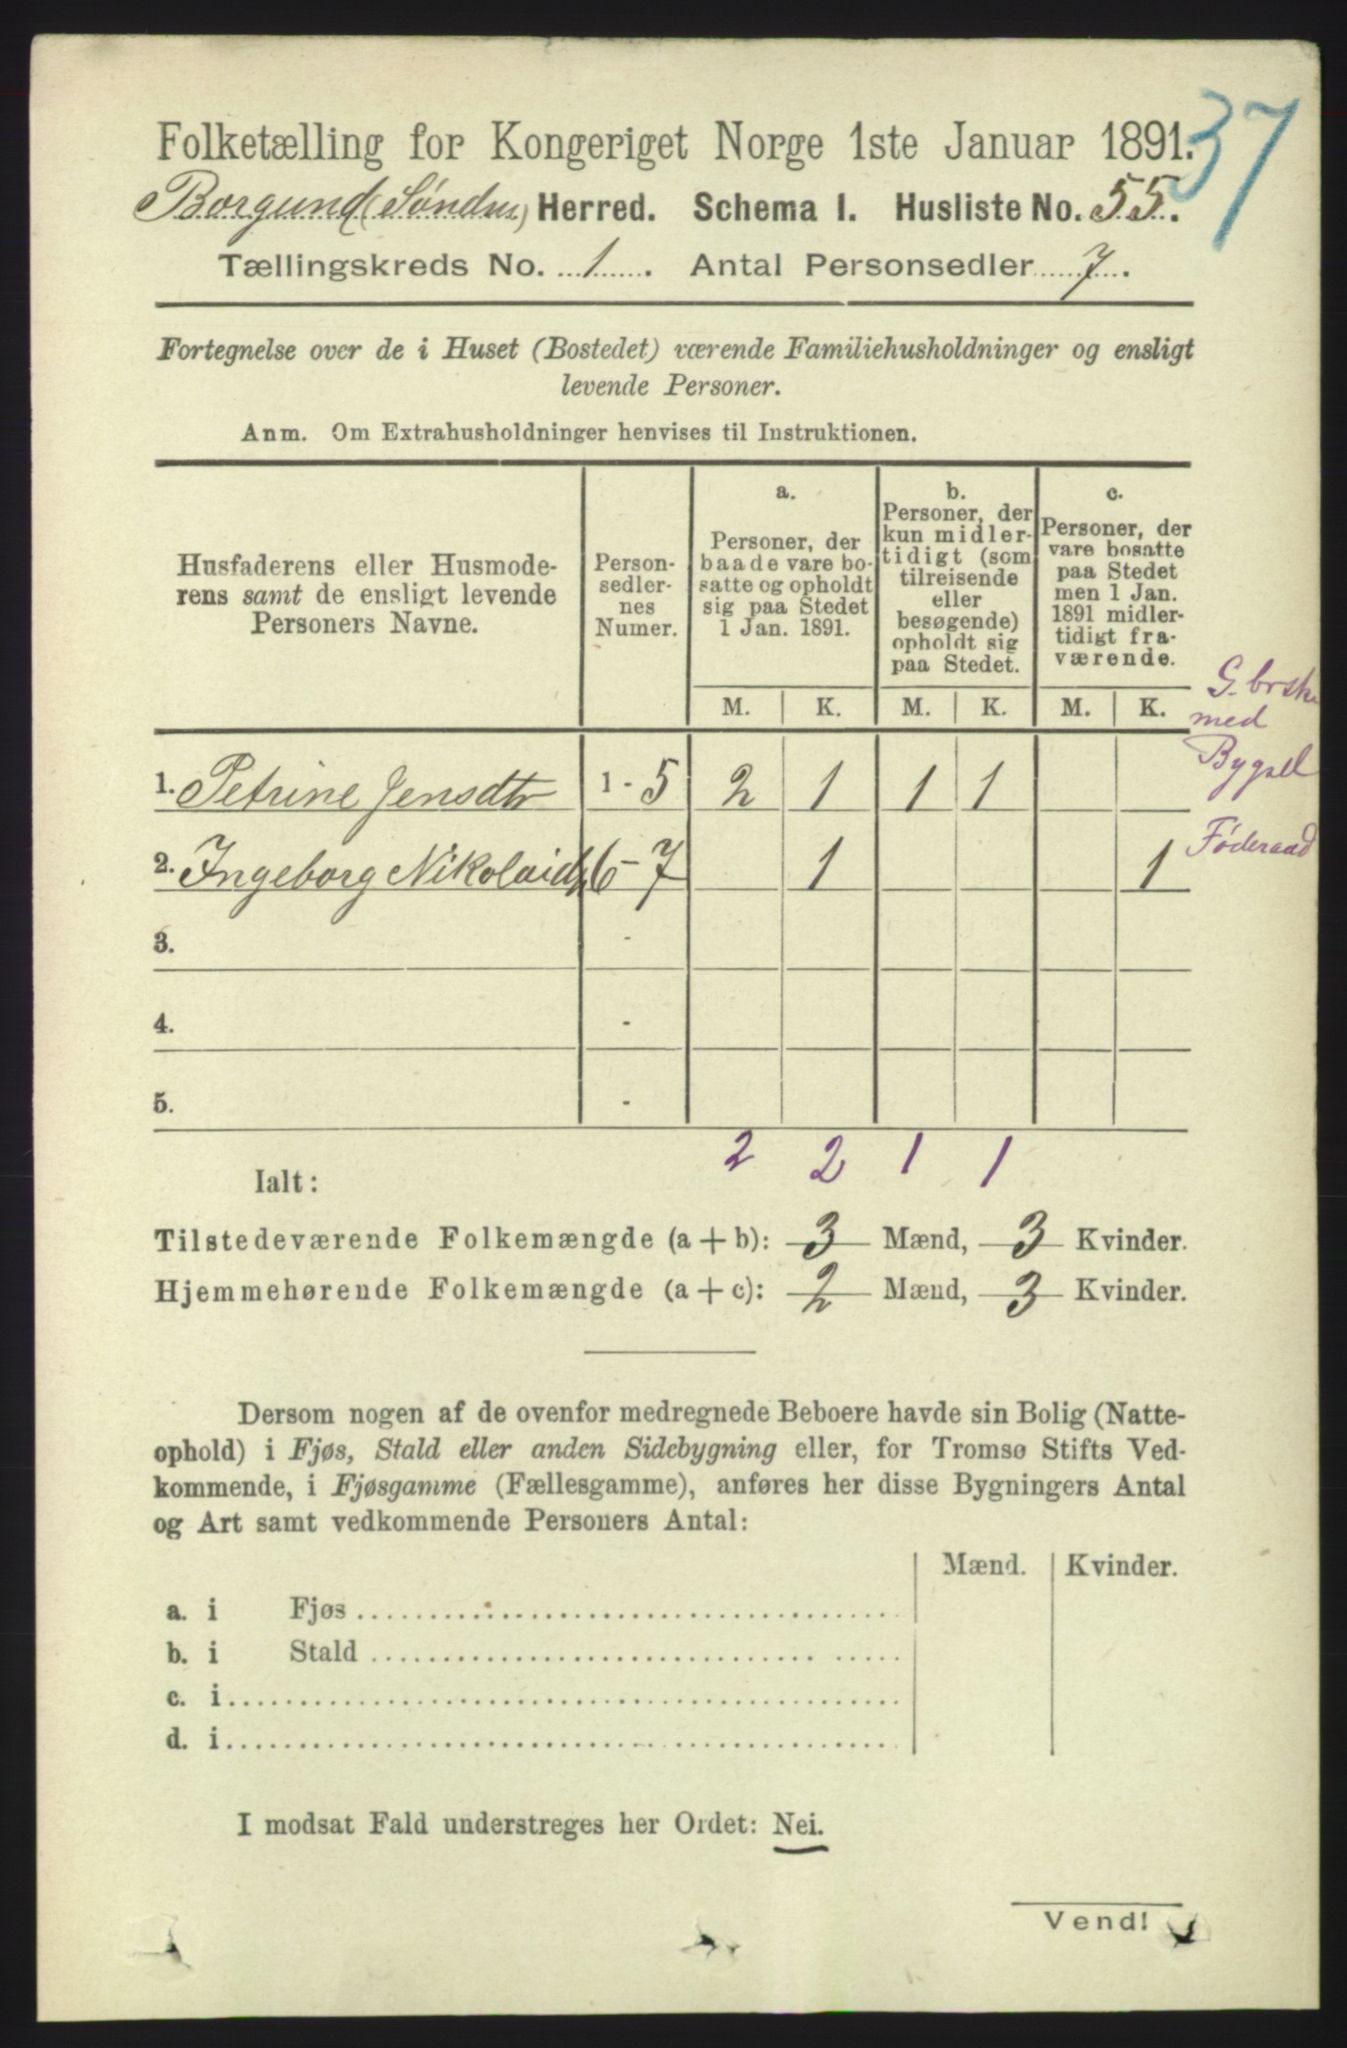 37
Folketælling for Kongeriget Norge 1ste Januar 1891.
Borgund (Søndre) Herred. Schema I. Husliste No. 55.
Tællingskreds No. 1. Antal Personsedler 7.
Fortegnelse over de i Huset (Bostedet) værende Familiehusholdninger og ensligt
levende Personer.
Anm. Om Extrahusholdninger henvises til Instruktionen.
Husfaderens eller Husmode-
rens samt de ensligt levende
Personers Navne.
Person-
sedler-
nes
Numer.
a.
Personer, der
baade vare bo-
satte og opholdt
sig paa Stedet
1 Jan. 1891.
b.
Personer, der
kun midler-
tidigt (som
tilreisende
eller
besøgende)
opholdt sig
paa Stedet.
c.
Personer, der
vare bosatte
paa Stedet
men 1 Jan.
1891 midler-
tidigt fra-
værende.
M. K. M. K. M. K.
G.brsk
med
Bygsel
1. Petrine Jensdtr 1 - 5 2 1 1 1
Føderaad
2. Ingeborg Nikolaidtr 6 - 7 1 1
3. -
4. -
5. -
2 2 1 1
Ialt:
Tilstedeværende Folkemængde (a + b): 3 Mænd, 3 Kvinder.
Hjemmehørende Folkemængde (a + c): 2 Mænd, 3 Kvinder.
Dersom nogen af de ovenfor medregnede Beboere havde sin Bolig (Natte-
ophold) i Fjøs, Stald eller anden Sidebygning eller, for Tromsø Stifts Ved-
kommende, i Fjøsgamme (Fællesgamme), anføres her disse Bygningers Antal
og Art samt vedkommende Personers Antal:
Mænd. Kvinder.
a. i Fjøs
b. i Stald
c. i
d. i
I modsat Fald understreges her Ordet: Nei.
Vend!